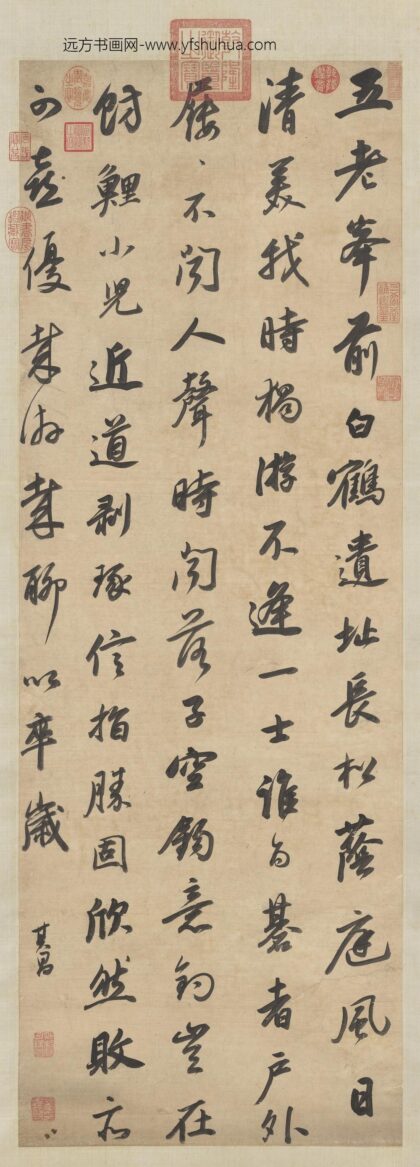 远方书画网-www.yfshuhua.com
乾隆御覽之寶
五老峯前白鶴遺址長松蔭庭風日
清美我時獨游不逢一士誰与碁者戶外
屨二不聞人聲時聞落子空鉤意釣豈在
魴鯉小兒近道剥琢信指勝固欣然敗亦
可喜優哉游哉聊以卒歲
其昌